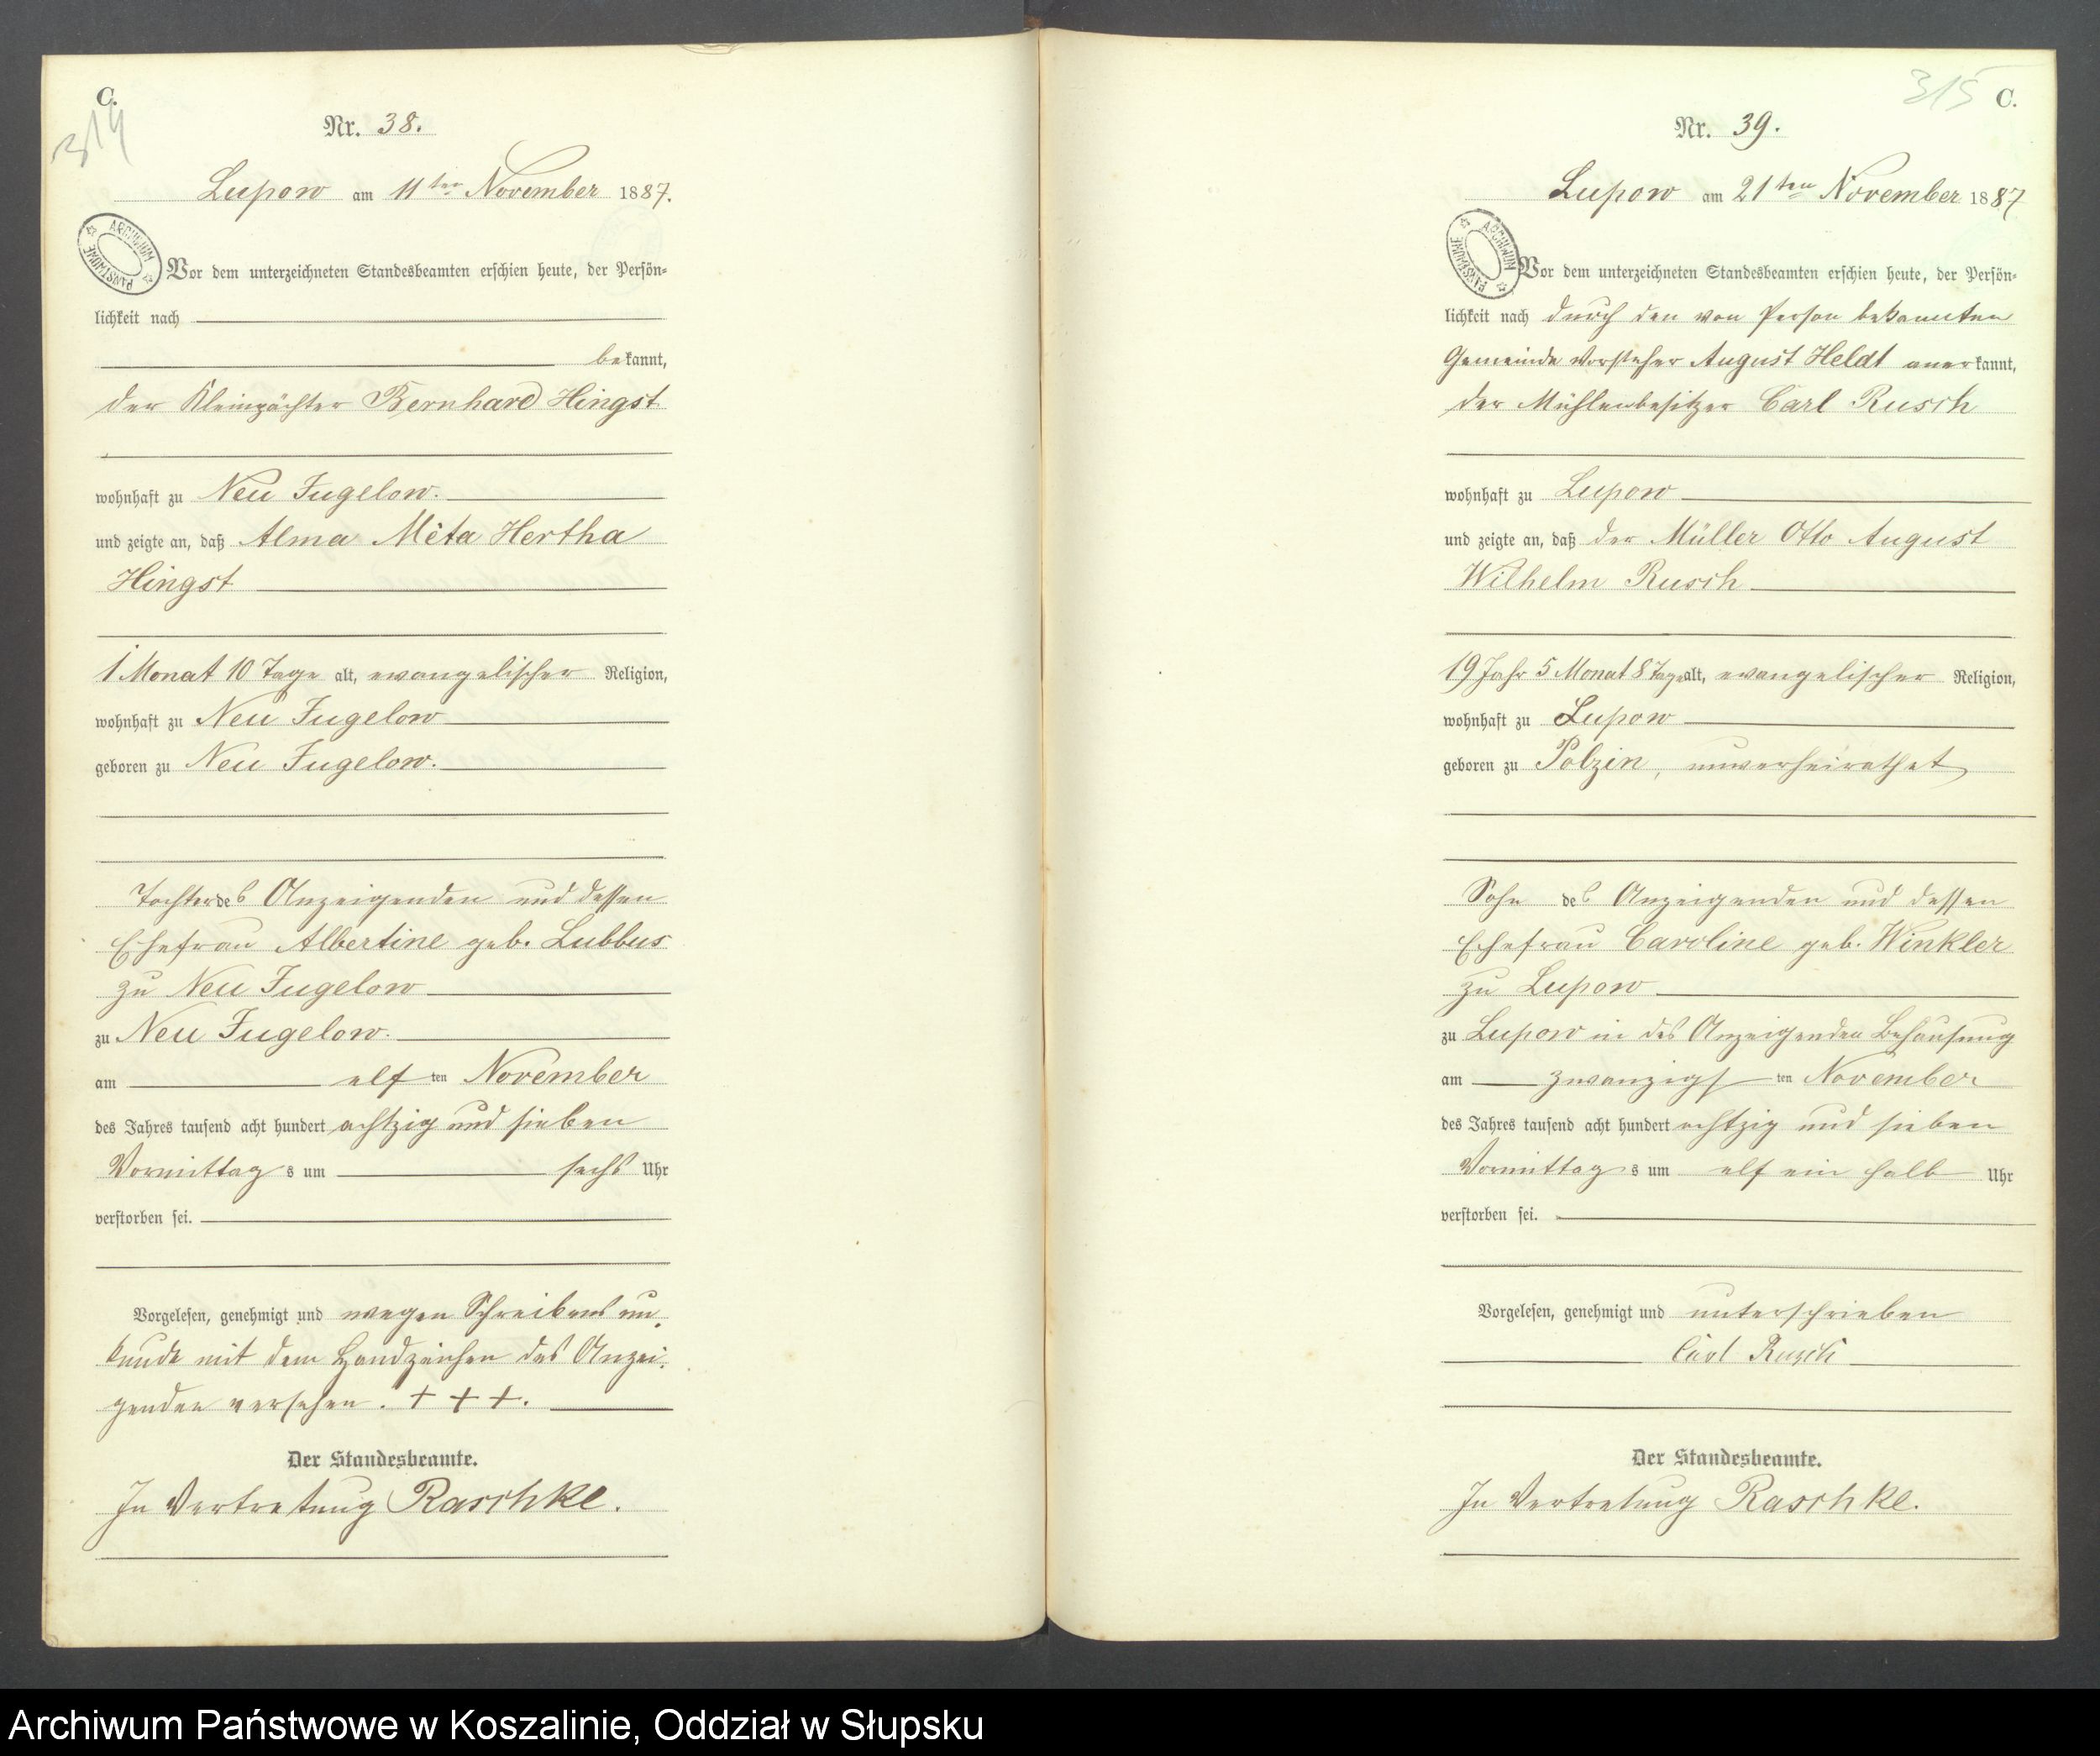 C.
314
Nr. 38.
Lupow am 11ten November 1887.
ARCHIWUM PAŃSTWOWE
Vor dem unterzeichneten Standesbeamten erschien heute, der Persön=
lichkeit nach
bekannt,
der Kleinpächter Bernhard Hingst
wohnhaft zu Neu Jugelow.
und zeigte an, daß Alma Meta Hertha
Hingst
1 Monat 10 Tage alt, evangelischer Religion,
wohnhaft zu Neu Jugelow
geboren zu Neu Jugelow.
Tochter des Anzeigenden und dessen
Ehefrau Albertine geb. Lubbus
zu Neu Jugelow
zu Neu Jugelow.
am elften November
des Jahres tausend acht hundert achtzig und sieben
Vormittags um sechs Uhr
verstorben sei.
Vorgelesen, genehmigt und wegen Schreibens un
kunde mit dem Handzeichen des Anzei
genden versehen. + + +.
Der Standesbeamte.
In Vertretung Raschke.
315 C.
Nr. 39.
Lupow am 21ten November 1887
ARCHIWUM PAŃSTWOWE
Vor dem unterzeichneten Standesbeamten erschien heute, der Persön=
lichkeit nach durch den von Person bekannten
Gemeinde Vorsteher August Heldt anerkannt,
der Mühlenbesitzer Carl Rusch
wohnhaft zu Lupow
und zeigte an, daß der Müller Otto August
Wilhelm Rusch
19 Jahr 5 Monat 8 Tage alt, evangelischer Religion,
wohnhaft zu Lupow
geboren zu Polzin, unverheirathet
Sohn des Anzeigenden und dessen
Ehefrau Caroline geb. Winkler
zu Lupow
zu Lupow in des Anzeigenden Behausung
am zwanzigsten November
des Jahres tausend acht hundert achtzig und sieben
Vormittags um elf ein halb Uhr
verstorben sei.
Vorgelesen, genehmigt und unterschrieben
Carl Rusch
Der Standesbeamte.
In Vertretung Raschke.
Archiwum Państwowe w Koszalinie, Oddział w Słupsku